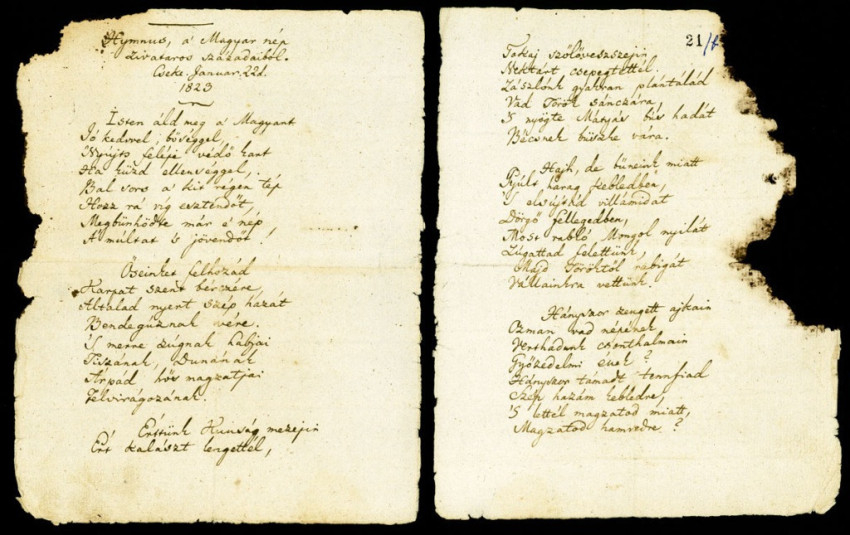 Hymnus, a' Magyar nép
zivataros századaiból.
Cseke. Januar. 22d.
1823
Isten áld meg a' Magyart
Jó kedvvel, bőséggel,
Nyújts feléje védő kart
Ha küzd ellenséggel,
Bal sors a' kit régen tép
Hozz rá víg esztendőt,
Megbűnhődte már e' nép
A' múltat 's jövendőt!
Őseinket felhozád
Kárpát szent bérczére,
Általad nyert szép hazát
Bendegúznak vére.
'S merre zúgnak habjai
Tiszának, Dunának
Árpád hős magzatjai
Felvirágozának.
Értünk Kunság mezejin
Ért kalászt lengettél,
21/
Tokaj szőlővesszejin
Nektárt csepegtettél.
Zászlónk gyakran plántálád
Vad Török sánczára,
'S nyögte Mátyás bús hadát
Bécsnek büszke vára.
Hajh, de bűneink miatt
Gyúlt harag kebledben,
'S elsújtád villámidat
Dörgő fellegedben,
Most rabló Mongol nyilát
Zúgattad felettünk,
Majd Töröktől rabigát
Vállainkra vettünk.
Hányszor zengett ajkain
Ozman vad népének
Vert hadunk csonthalmain
Győzedelmi ének?
Hányszor támadt tennfiad
Szép hazám kebledre,
'S lettél magzatod miatt,
Magzatod hamvvedre?